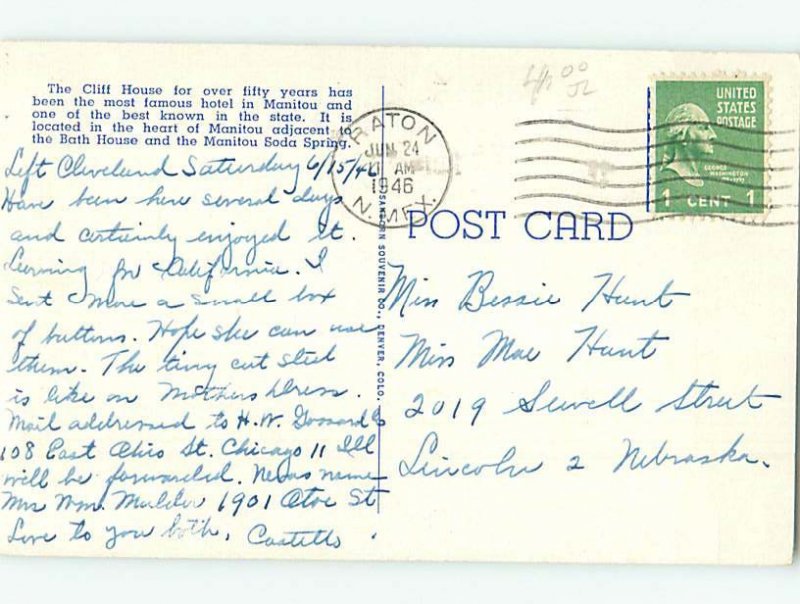 The Cliff House for over fifty years has
been the most famous hotel in Manitou and
one of the best known in the state. It is
located in the heart of Manitou adjacent to
the Bath House and the Manitou Soda Spring.
Left Cleveland Saturday 6/15/46
Have been here several days
and certainly enjoyed it.
Leaving for California. I
sent Mae a small box
of buttons. Hope she can use
them. The tiny cut steel
is like on Mothers Dress.
Mail addressed to H. W. Gossard Co
108 East Ohio St. Chicago 11 Ill
will be forwarded. name
Mrs Wm. 1901 Otoe St
Love to you both,
SANBORN SOUVENIR CO., DENVER, COLO.
RATON
JUN 24
11 AM
1946
N. MEX.
UNITED
STATES
POSTAGE
GEORGE
WASHINGTON
1 CENT 1
POST CARD
Miss Bessie Hunt
Miss Mae Hunt
2019 Sewell Street
Lincoln 2 Nebraska.